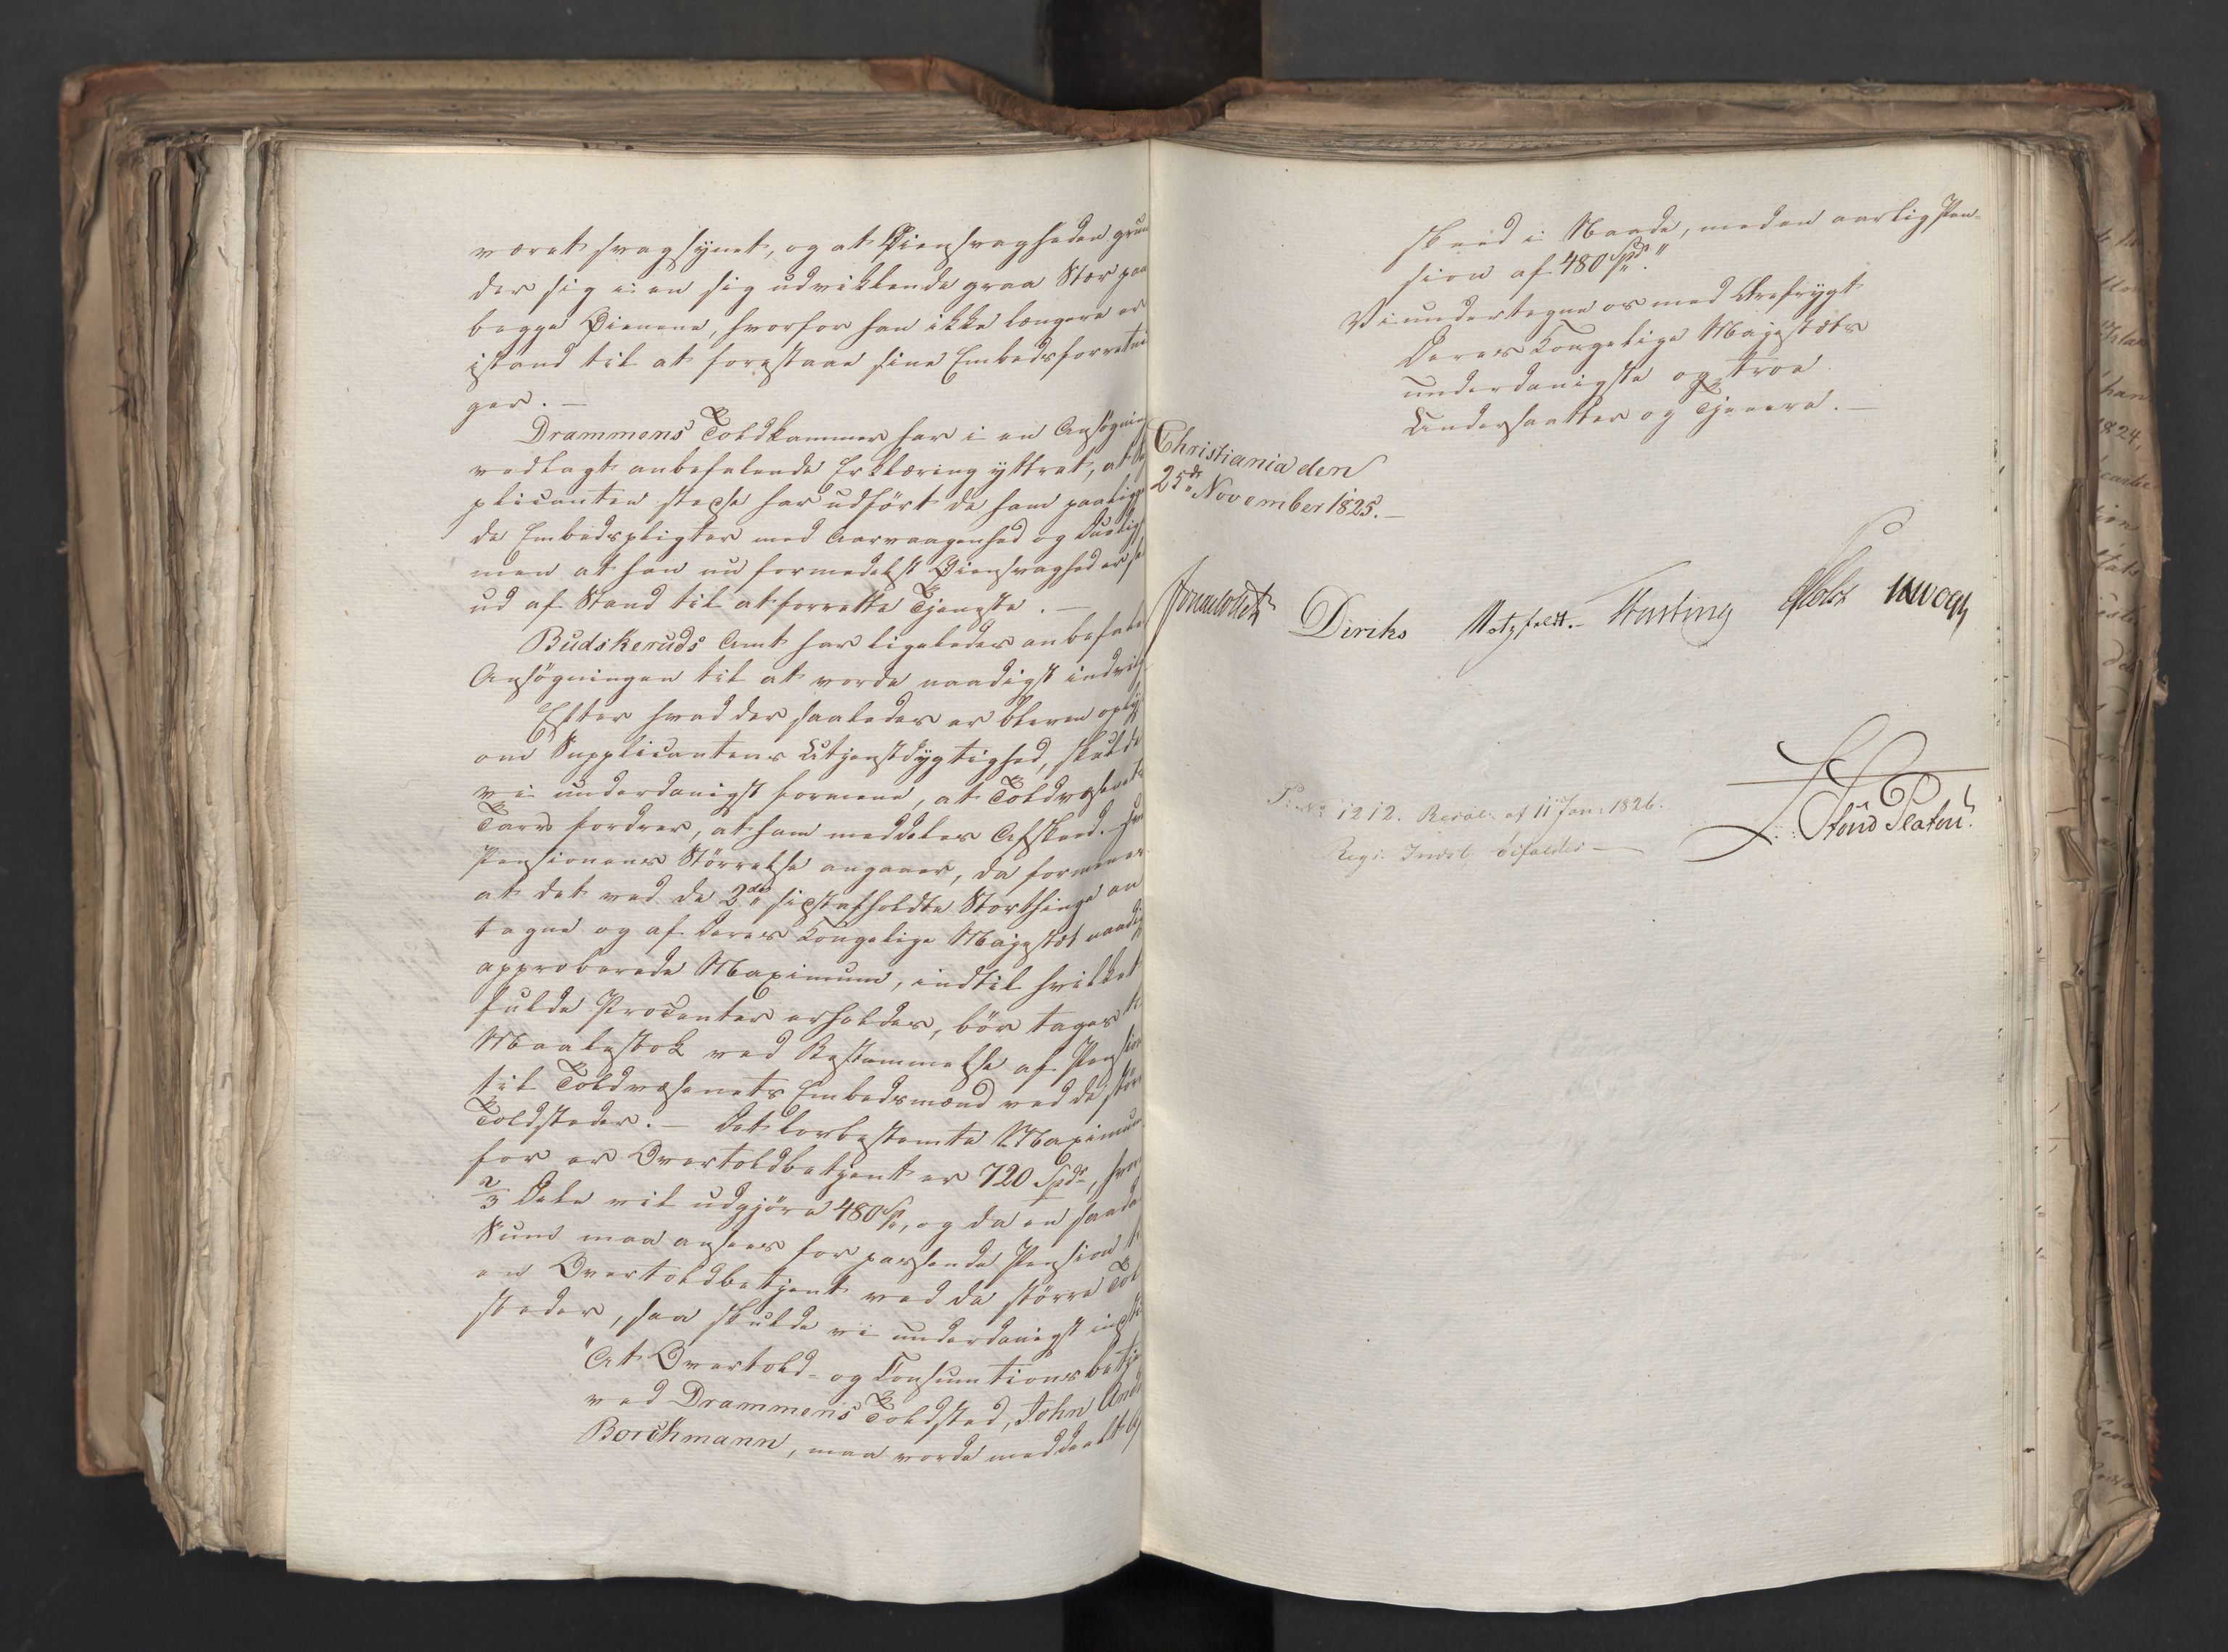 været svagsynet, og at Øiensvagheden grun
der sig i en sig udviklende graa Stær paa
begge Øienene, hvorfor han ikke længere er
istand til at forestaae sine Embedsforretnin
ger. —
Drammens Toldkammer har i en Ansøgning
vedlagt anbefalende Erklæring yttret, at
plicanten stedse har udført de ham paaliggen
de Embedspligter med Aarvaagenhed og Duelig
men at han nu formedelst Øiensvaghed er
ud af Stand til at forrette Tjeneste. —
Budskeruds Amt har ligeledes anbefalet
Ansøgningen til at vorde naadigst indvil
Efter hvad der saaledes er bleven oply
om Supplicantens Utjenstdygtighed, skulde
vi underdanigst formene, at Toldvæsenets
Tarv fordrer, at ham meddeles Afsked.
Pensionens Størrelse angaaer, da formenes
at det ved de 2de sidstafholdte Storthinge an
tagne og af Deres Kongelige Majestæt naadigst
approberede Maximum, indtil hvilket
fulde Procenter erholdes, bør tages
Maalestok ved Bestemmelse af Pension
til Toldvæsenets Embedsmænd ved de større
Toldsteder. — Det lovbestemte Maximum
for en Overtoldbetjent er 720 Spdr, hvor
2/3 Dele vil udgjøre 480 Sp, og da en saadan
Sum maa ansees for passende Pension
en Overtoldbetjent ved de større Told
steder, saa skulde vi underdanigst indstille
"At Overtold- og Consumtionsbetje
ved Drammens Toldsted, John And
Borchmann, maa vorde meddeelt Af
sked i Naade, med en aarlig Pen-
sion af 480 Spd."
Vi undertegne os med Ærefrygt
Deres Kongelige Majestæts
underdanigste og troe
Undersaatter og Tjenere. —
Christiania den
25de November 1825. —
Jonas Collett Diriks Motzfeldt. Fasting Holst
No 1212. Resol. af 11 Jan. 1826.
Regj. Indst. bifaldes —
Platou.